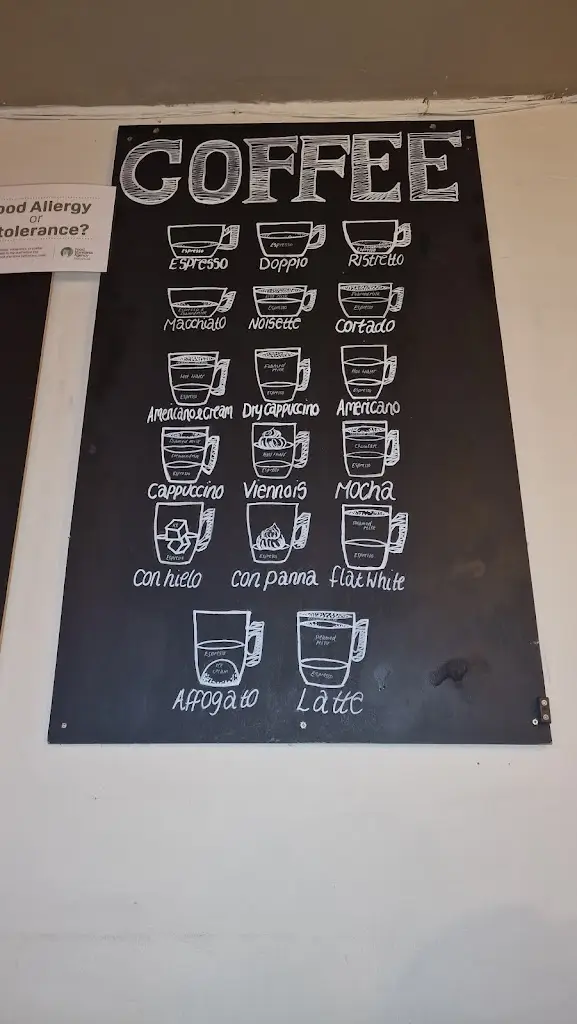 COFFEE
ood Allergy
or
tolerance?
Espresso
Espresso
Espresso
Espresso Doppio Ristretto
Espresso
Espresso
Macchiato Noisette Cortado
Hot Water
Foamed Milk
Hot Water
Espresso
Espresso
Espresso
Americano & cream Dry Cappuccino Americano
Espresso
Espresso
Chocolate
Espresso
Cappuccino Viennois Mocha
Espresso
Espresso
Steamed Milk
Espresso
Con hielo Con panna flat White
Espresso
Ice Cream
Steamed Milk
Espresso
Affogato Latte